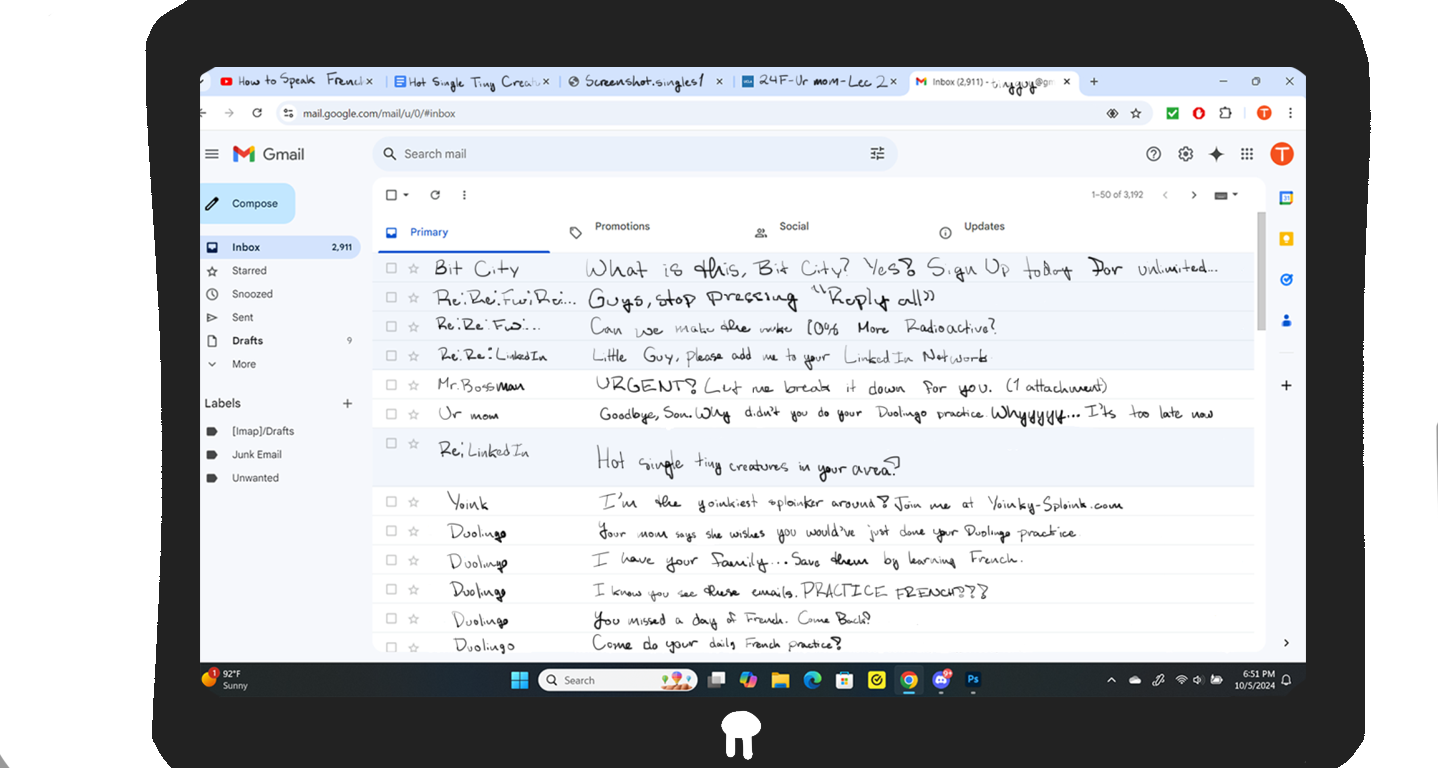 How to Speak Frenc
Hot Single Tiny Creat
Screenshot.singles1
24F-Ur mom-Lec 2
Inbox (2,911) - tinyguy@gm
mail.google.com/mail/u/0/#inbox
T
Gmail
Search mail
T
Compose
1–50 of 3,192
Primary
Promotions
Social
Updates
Inbox 2,911
Starred
Snoozed
Sent
Drafts 9
More
Labels
[Imap]/Drafts
Junk Email
Unwanted
Bit City What is this, Bit City? Yes! Sign Up today for unlimited...
Re:Re:Fw:Re:... Guys, stop pressing "Reply all"
Re:Re:Fw:... Can we make the nuke 10% More Radioactive?
Re:Re:LinkedIn Little Guy, please add me to your LinkedIn Network
Mr.Bossman URGENT! Let me break it down for you. (1 attachment)
Ur mom Goodbye, Son. Why didn't you do your Duolingo practice Whyyyyy... It's too late now
Re: LinkedIn Hot single tiny creatures in your area!
Yoink I'm the yoinkiest sploinker around! Join me at Yoinky-Sploink.com
Duolingo Your mom says she wishes you would've just done your Duolingo practice
Duolingo I have your family... Save them by learning French.
Duolingo I know you see these emails. PRACTICE FRENCH!!!
Duolingo You missed a day of French. Come Back!
Duolingo Come do your daily French practice!
1
92°F
Sunny
Search
Ps
6:51 PM
10/5/2024